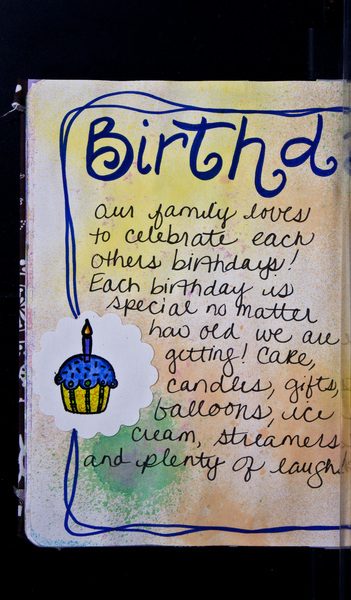 Birthd
our family loves
to celebrate each
others birthdays!
Each birthday is
special no matter
how old we are
getting! Cake,
candles, gifts,
balloons, ice
cream, streamers
and plenty of laugh